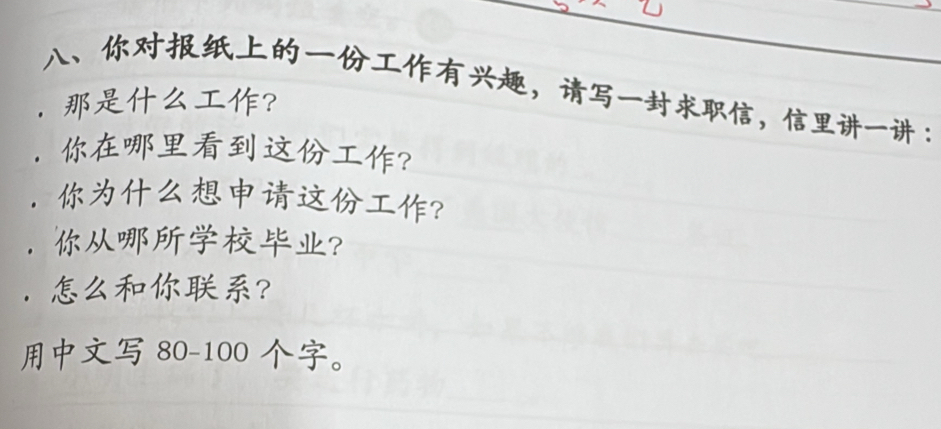 八、你对报纸上的一份工作有兴趣，请写一封求职信，信里讲一讲：
. 那是什么工作?
. 你在哪里看到这份工作?
. 你为什么想申请这份工作?
. 你从哪所学校毕业?
. 怎么和你联系?
用中文写 80-100 个字。